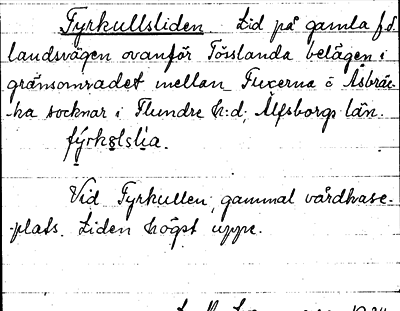 Fyrkullsliden Lid på gamla f.d.
landsvägen ovanför Torslanda belägen i
gränsområdet mellan Fuxerna o Åsbräc-
ka socknar i Flundre h:d, Älfsborgs län.
fýrkolslia.
Vid Fyrkullen, gammal vårdkase-
-plats. Liden högst uppe.